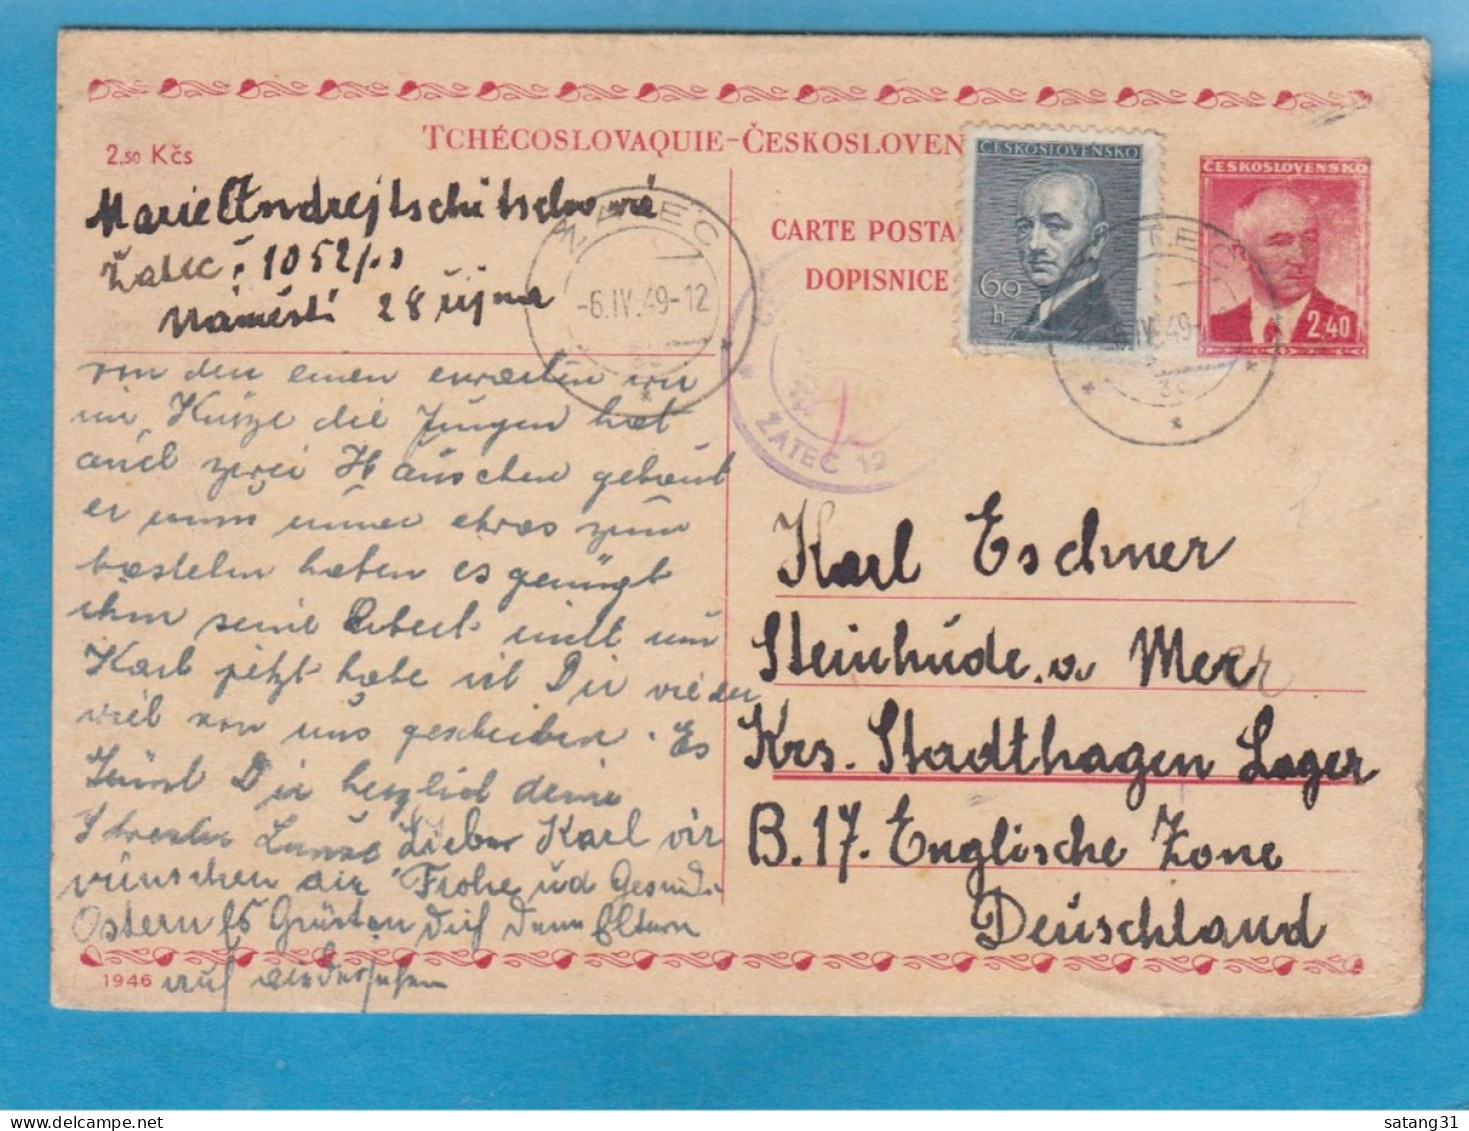 TCHÉCOSLOVAQUIE-ČESKOSLOVEN
2.50 Kčs
ČESKOSLOVENSKO
60
h
ČESKOSLOVENSKO
2.40
CARTE POSTA
DOPISNICE
Žatec 1052/
Náměstí 28 října
ŽATEC
-6.IV.49-12
ŽATEC 12
von den einen erwarten wir
in Kürze die Jungen hat
auch zwei Häuschen gebaut
er muss immer etwas zum
basteln haben es genügt
ihm seine Arbeit nicht nun
Karl jetzt habe ich Dir wieder
viel von uns geschrieben. Es
Dich herzlich deine
Lieber Karl wir
wünschen dir Frohe ud Gesunde
Ostern Es Grüsten Dich Deine Eltern
auf
Karl Eschner
Steinhude. a. Meer
Krs. Stadthagen Lager
B. 17. Englische Zone
Deuschland
1946
satang31